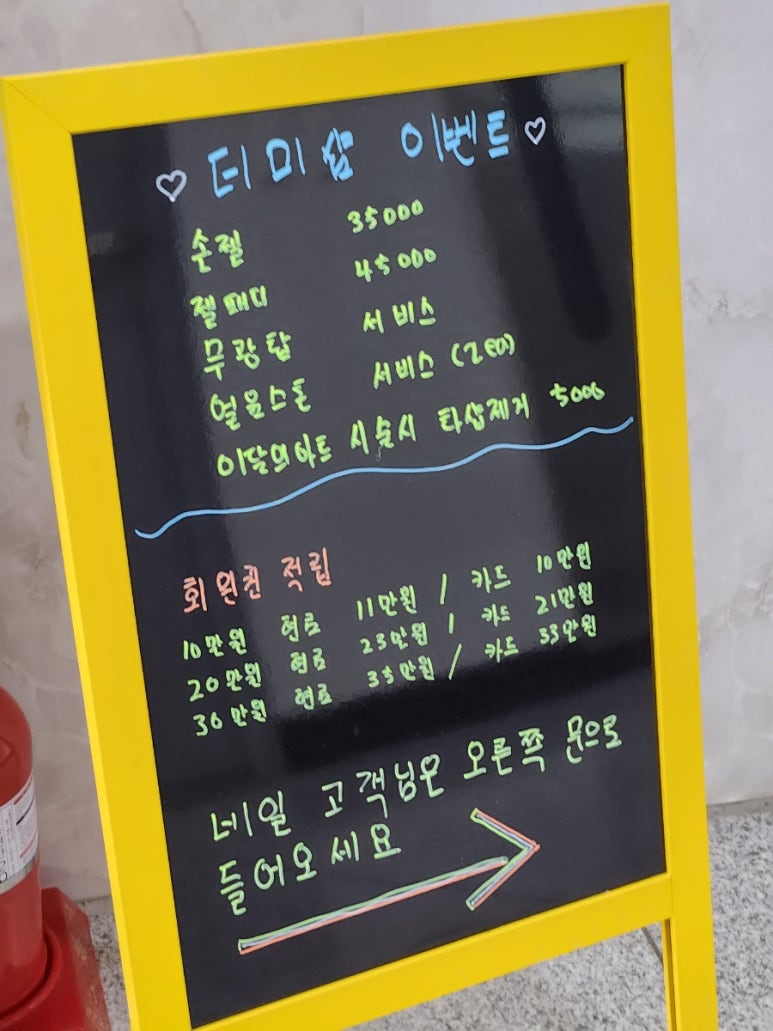 ♡ 더미샵 이벤트 ♡
손젤 35000
젤패디 45000
무광탑 서비스
얼음스톤 서비스 (2ea)
이달의아트 시술시 타샵제거 5000
회원권 적립
10만원 현금 11만원 / 카드 10만원
20만원 현금 23만원 / 카드 21만원
30만원 현금 35만원 / 카드 33만원
네일 고객님은 오른쪽 문으로
들어오세요